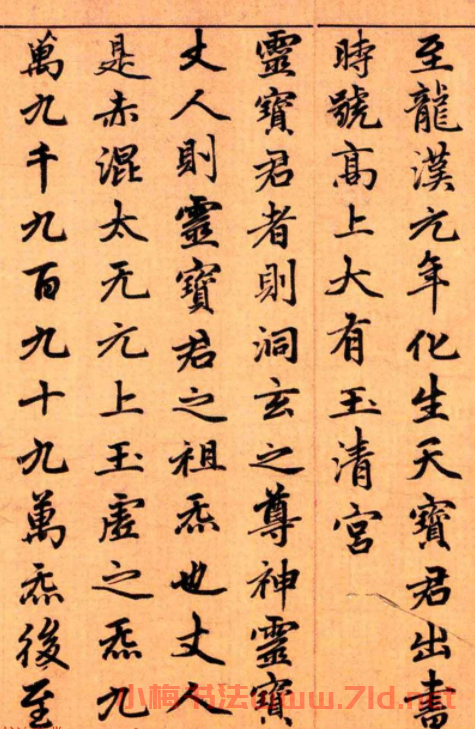 至龍漢元年化生天寶君出書
時號高上大有玉清宮
靈寶君者則洞玄之尊神靈寶
丈人則靈寶君之祖炁也丈人
是赤混太无元上玉虛之炁九
萬九千九百九十九萬炁後至
小梅书法www.7ld.net